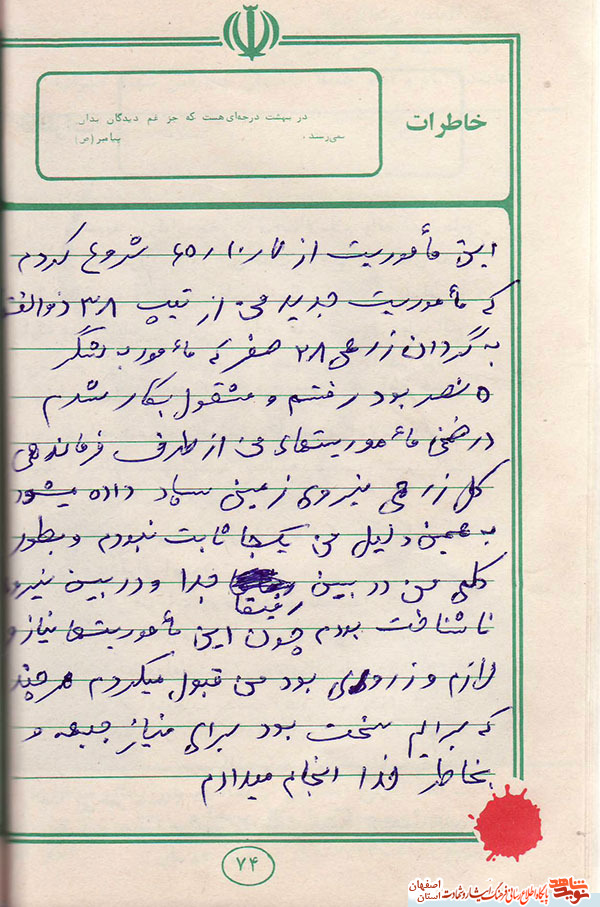 خاطرات
در بهشت درجه‌ای هست که جز غم دیدگان بدان
نمی‌رسند. پیامبر (ص)
این مأموریت از شروع کردم
که مأموریت جدید من از تیپ ۳۸ ذوالفق
به گردان زرهی ۲۸ صفر که مأمور به لشگر
۵ نصر بود رفتم و مشقول بکار شدم
در ضمن مأموریتهای من از طرف فرماندهی
کل زرهی نیروی زمینی سپاه داده میشود
به همین دلیل من یکجا ثابت نبودم و بطور
کلی من در بین رفیقا جدا و در بین نیرو
ناشناخت بودم چون این مأموریتها نیاز و
لازم و زروری بود من قبول میکردم هر چند
که برایم سخت بود برای نیاز جبهه و
بخاطر خدا انجام میدادم
۷۴
نوید شاهد
پایگاه اطلاع رسانی فرهنگ ایثار و شهادت
استان اصفهان